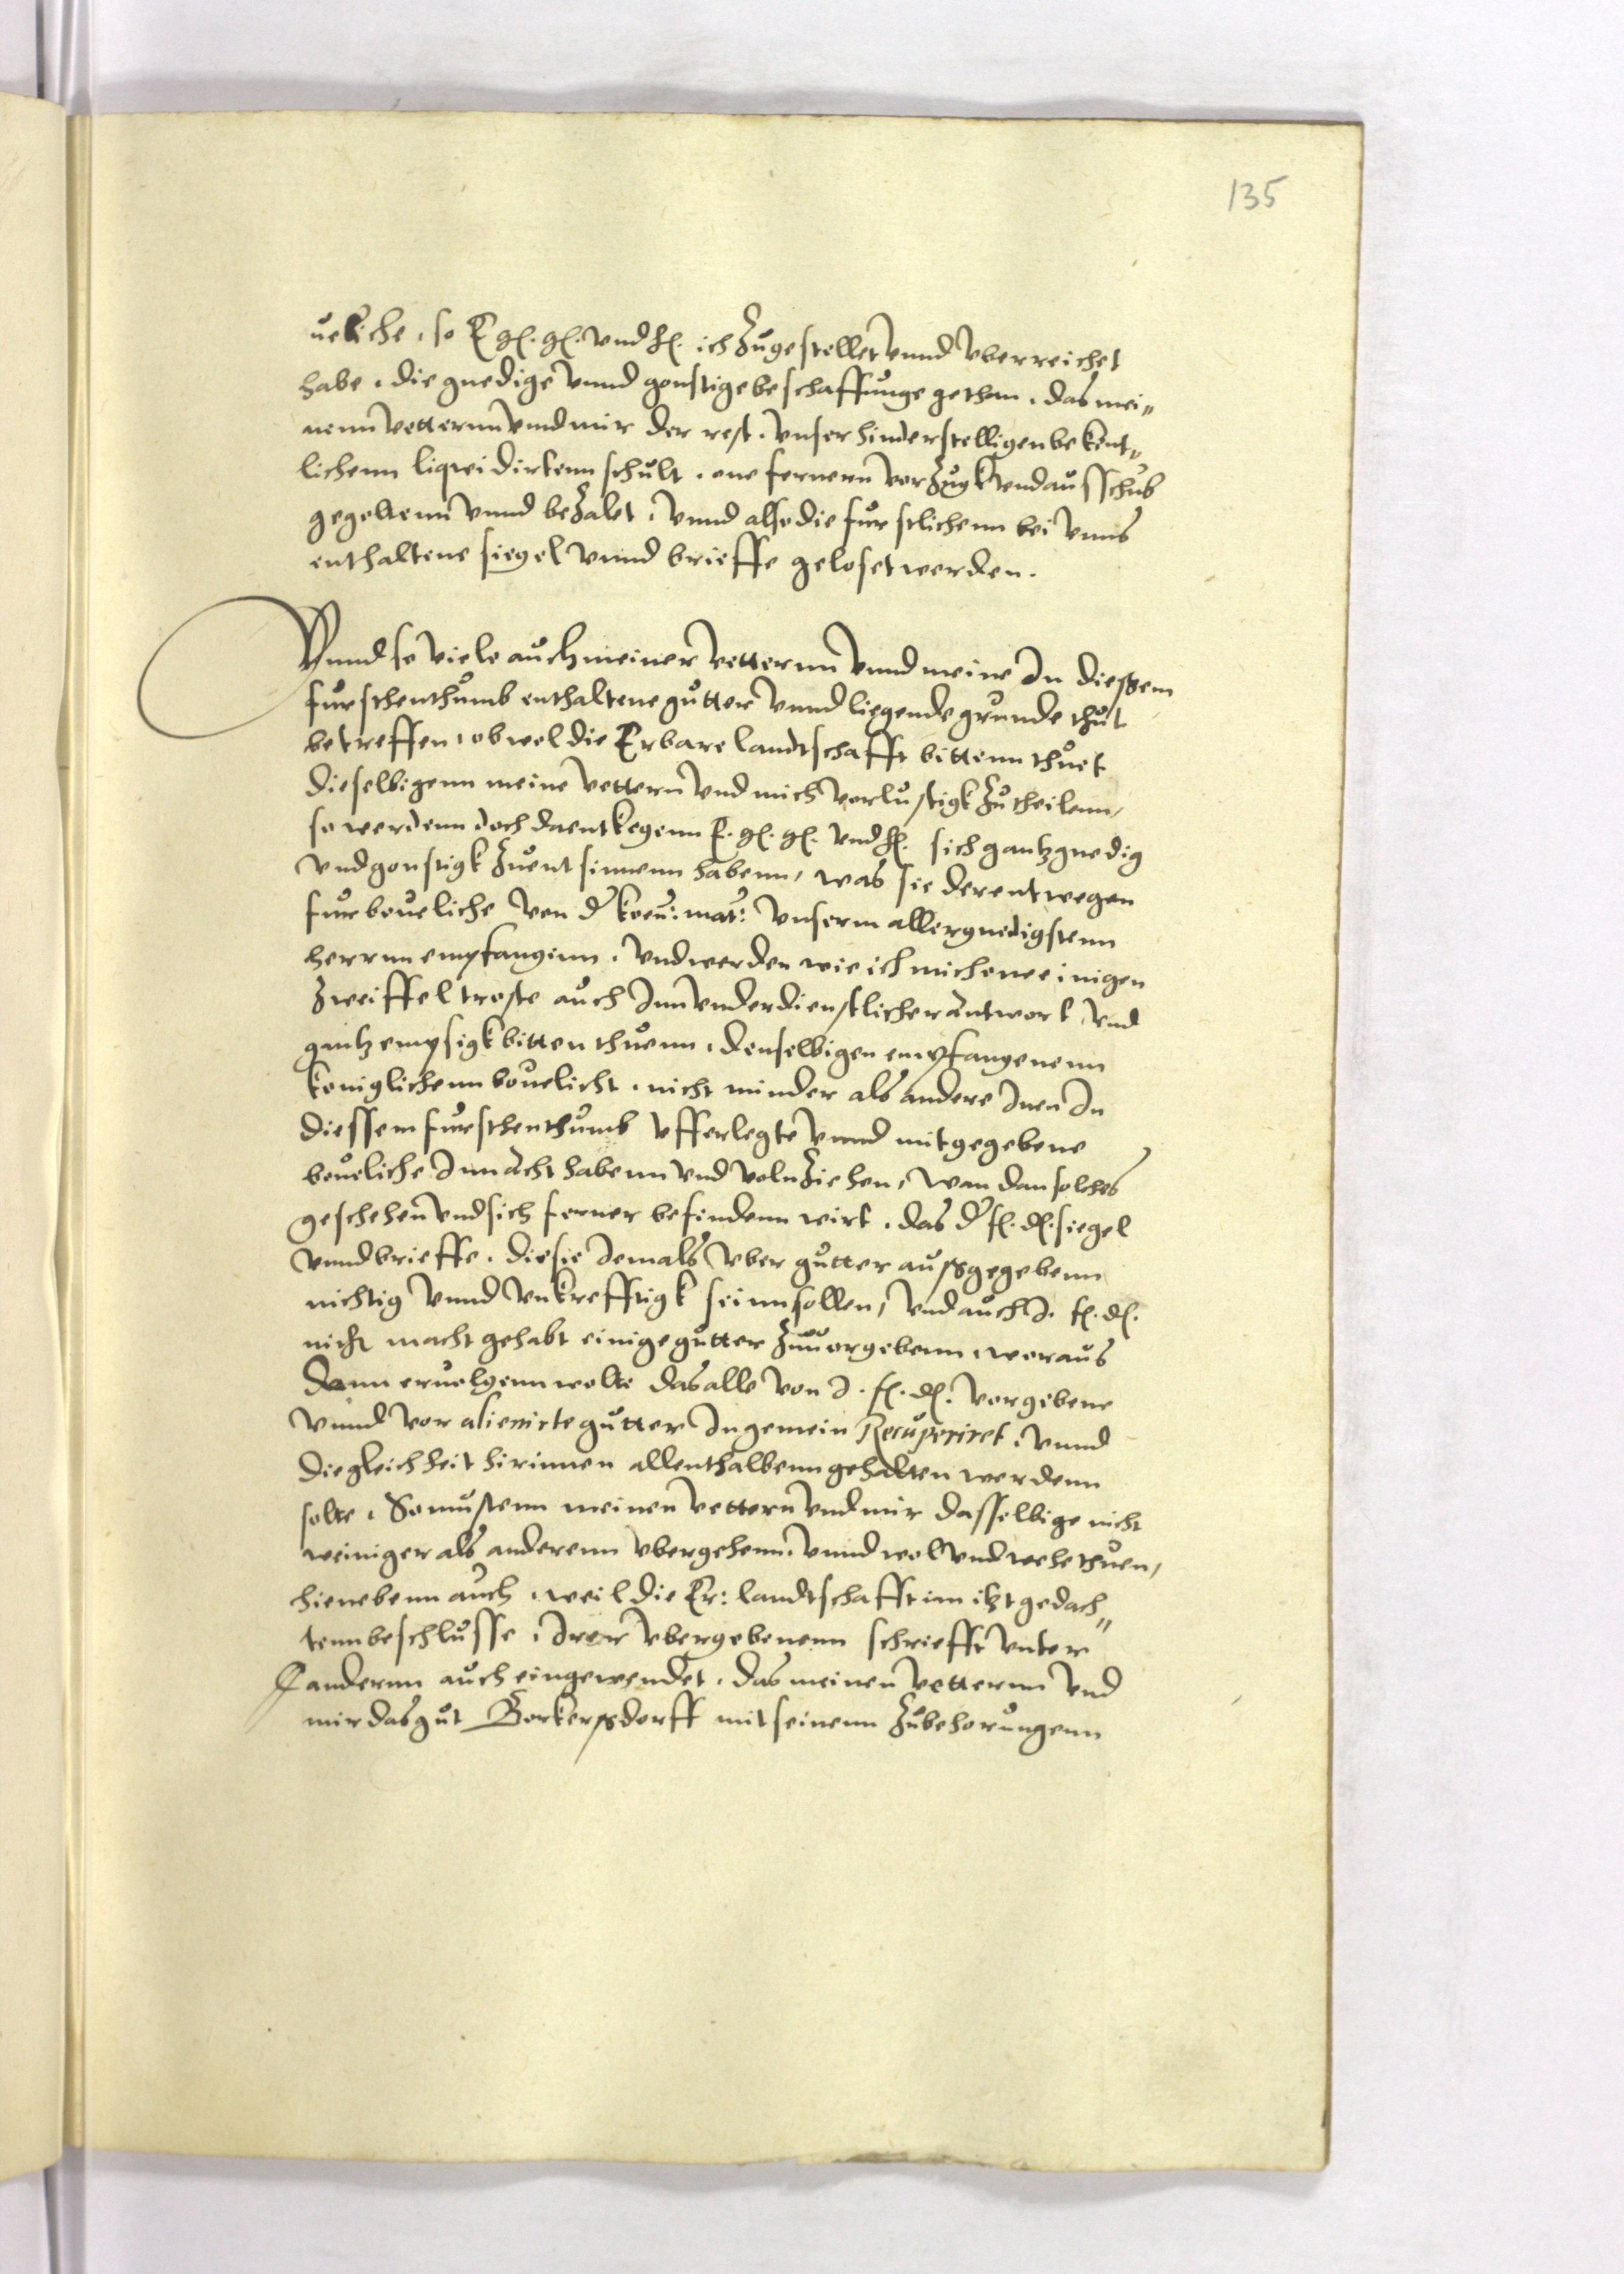 135
ueliche, so E. gn. gn. vnd h. ich zugestellet vnnd vberreichet
habe, die gnedige vnnd gonstige beschaffunge gethan, das mei„
nenn vetternn vnnd mir der rest, vnser hinderstelligen bekent„
lichenn liqueidirtenn schult, one fernern vorzugk vnd ausschub
gegoltenn vnnd bezalet, vnnd also die furstlichenn bei vnns
enthaltene siegel vnnd brieffe geloset werden.
Vnnd so viele auch meiner vetternn vnnd meine In diessem
furschenthumb enthaltene gutter vnnd liegende grunde thut
betreffen, ob wol die Erbare landtschafft bittenn thuet
dieselbigenn meine vettern vnd mich vorlustigk zu theilenn,
so werdenn doch daentkegenn E. gn. gn. vnd h. sich gantz gnedig
vnd gonstigk zu entsinnenn habenn, was sie derentwegen
fur beueliche von d. kon: mat: vnserm allergnedigstenn
herrnn empfangenn, vnd werden wie ich mich one einigen
zweiffel troste auch Inn vnderdienstlicher antwort vnd
gantz empsigk bitten thuenn, denselbigen empfangenenn
koniglichenn beuelicht, nicht minder als andere Inen In
diessem furschenthumb vfferlegte vnnd mitgegebene
beueliche Inn acht habenn vnd volnziehen, wan dan solches
geschehen vnd sich ferner befindenn wirt, das d. f. d. siegel
vnnd brieffe, die sie Iemals vber gutter aussgegebenn
nichtig vnnd vnkrefftigk sein sollen, vnd auch I. f. d.
nicht macht gehabt einige gutter zuuorgebenn, woraus
dann eruolgenn wolte das alle von I. f. d. vorgebene
vnnd voralienirte gutter In gemein Recuperiret, vnnd
die gleichheit hirinnen allenthalbenn gehalten werdenn
solte, So mustenn meinen vettern vnd mir dasselbige nicht
weiniger als anderenn vbergehenn, vnnd wol vnd wehe thuen,
hienebenn auch, weil die Er: landtschafft im itzt gedach„
tenn beschlusse, Irer vbergebenenn schriefft vnter
anderenn auch eingewendet, das meinen vetternn vnd
mir das gut Borkerssdorff mit seinenn zubehorungenn